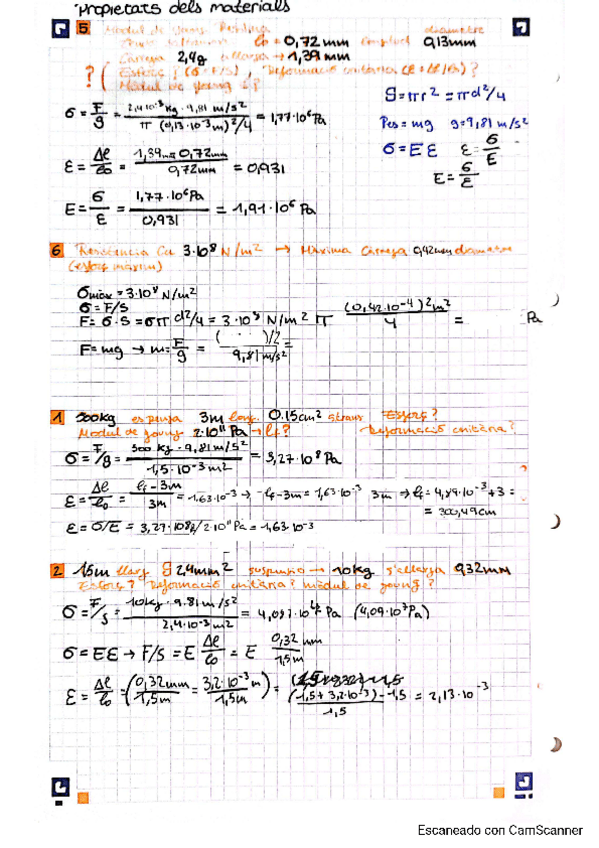 Propietats dels materials
5 Mòdul de young diàmetre
l₀ = 0,72 mm 0,13mm
Càrrega 2,4g allarga → 1,39 mm
?( Esforç? (σ=F/S), Deformació unitària (ε=Δl/l₀)?
Mòdul de young E?
S=πr² = πd²/4
Pes = mg g=9,81 m/s²
σ=Eε ε=σ/E
E=σ/ε
σ = F/S = 2,4·10⁻³kg · 9,81 m/s² / π (0,13·10⁻³m)²/4 = 1,77·10⁶Pa
ε = Δl/l₀ = 1,39mm 0,72mm / 0,72mm = 0,931
E = σ/ε = 1,77·10⁶Pa / 0,931 = 1,91·10⁶ Pa
6 Resistència Cu 3·10⁸ N/m² → Màxima càrrega 0,42mm diàmetre
(esforç màxim)
σmàx = 3·10⁸ N/m²
σ = F/S
F = σ·S = σπ d²/4 = 3·10⁸ N/m² π (0,42·10⁻⁴)²m² / 4 = Pa
F = mg → m = F/g = ( )/2 / 9,81 m/s² =
1 500kg es penja 3m 0.15cm² Esforç?
Mòdul de young 2·10¹¹ Pa → lf? Deformació unitària?
σ = F/S = 500 kg · 9,81 m/s² / 1,5·10⁻³ m² = 3,27·10⁸ Pa
ε = Δl/l₀ = lf-3m / 3m = 1,63·10⁻³ → lf-3m = 1,63·10⁻³ 3m → lf = 4,89·10⁻³+3 =
= 300,49cm
ε = σ/E = 3,27·10⁸/2·10¹¹ Pa = 1,63·10⁻³
2 1,5m llarg S 2,4mm² suspensió → 10kg s'allarga 0,32mm
Esforç? Deformació unitària? mòdul de young?
σ = F/S = 10kg · 9.81 m/s² / 2,4·10⁻³ m² = Pa (4,09·10⁷Pa)
σ = Eε → F/S = E Δl/l₀ = E 0,32 mm / 1,5m
ε = Δl/l₀ = (0,32mm / 1,5m = 3,2·10⁻³ m / 1,5m) = (1,5+3,2·10⁻³)-1,5 / 1,5 = 2,13·10⁻³
Escaneado con CamScanner